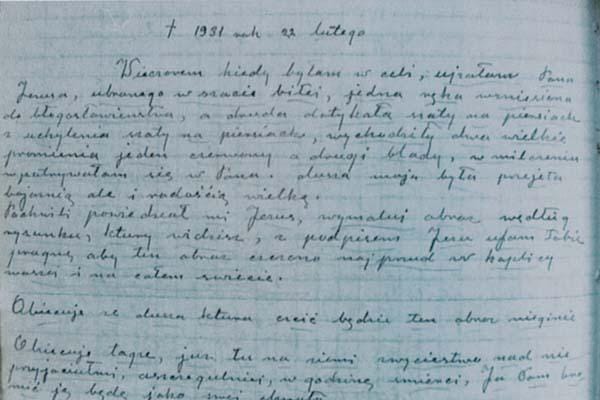 † 1931 rok 22 lutego
Wieczorem kiedy byłam w celi, ujrzałam Pana
Jezusa, ubranego w szacie białej, jedna ręka wzniesiona
do błogosławieństwa, a druga dotykała szaty na piersiach
z uchylenia szaty na piersiach, wychodziły dwa wielkie
promienia jeden czerwony a drugi blady, w milczeniu
wpatrywałam się w Pana. dusza moja była przejęta
bojaźnią ale i radością wielką.
Po chwili powiedział mi Jezus, wymaluj obraz według
rysunku, który widzisz, z podpisem Jezu ufam Tobie
pragnę aby ten obraz czczono najprzód w kaplicy
waszej i na całem świecie.
Obiecuję że dusza która czcić będzie ten obraz nie zginie
Obiecuję także, już tu na ziemi zwycięstwo nad nie
przyjaciółmi, a szczególniej, w godzinę śmierci, Ja Sam bro
nić ją będę jako swej chwały